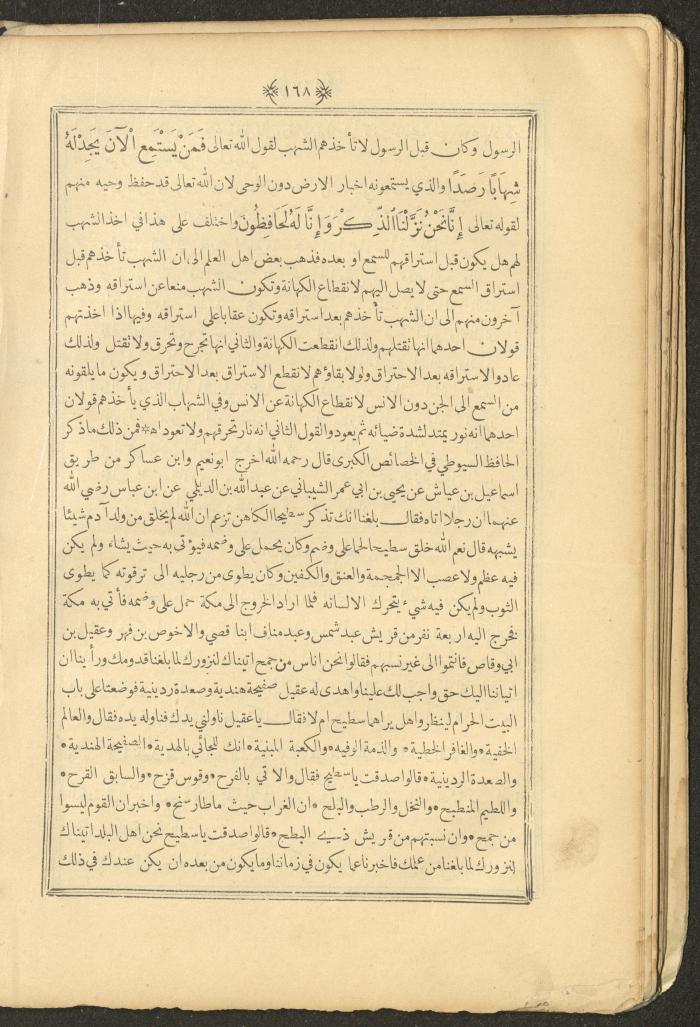 ١٦٨
الرسول وكان قبل الرسول لا تأخذهم الشهب لقول الله تعالى فَمَنْ يَسْتَمِعِ الْآنَ يَجِدْ لَهُ
شِهَابًا رَصَدًا والذي يستمعونه اخبار الارض دون الوحي لان الله تعالى قد حفظ وحيه منهم
لقوله تعالى إِنَّا نَحْنُ نَزَّلْنَا الذِّكْرَ وَإِنَّا لَهُ لَحَافِظُونَ واختلف على هذا في اخذ الشهب
لهم هل يكون قبل استراقهم للسمع او بعده فذهب بعض اهل العلم الى ان الشهب تأخذهم قبل
استراق السمع حتى لا يصل اليهم لانقطاع الكهانة وتكون الشهب منعا عن استراقه وذهب
آخرون منهم الى ان الشهب تأخذهم بعد استراقه وتكون عقابا على استراقه وفيها اذا اخذتهم
قولان احدهما انها تقتلهم ولذلك انقطعت الكهانة والثاني انها تجرح وتحرق ولا تقتل ولذلك
عادوا لاستراقه بعد الاحتراق ولولا بقاؤهم لانقطع الاستراق بعد الاحتراق ويكون ما يلقونه
من السمع الى الجن دون الانس لانقطاع الكهانة عن الانس وفي الشهاب الذي يأخذهم قولان
احدهما انه نور يمتد لشدة ضيائه ثم يعود والقول الثاني انه نار تحرقهم ولا تعود اه* فمن ذلك ما ذكر
الحافظ السيوطي في الخصائص الكبرى قال رحمه الله اخرج ابو نعيم وابن عساكر من طريق
اسماعيل بن عياش عن يحيى بن ابي عمر الشيباني عن عبد الله بن الديلمي عن ابن عباس رضي الله
عنهما ان رجلا اتاه فقال بلغنا انك تذكر سطيحا الكاهن تزعم ان الله لم يخلق من ولد آدم شيئا
يشبهه قال نعم الله خلق سطيحا لحما على وضم وكان يحمل على وضمه فيؤتى به حيث يشاء ولم يكن
فيه عظم ولا عصب الا الجمجمة والعنق والكفين وكان يطوى من رجليه الى ترقوته كما يطوى
الثوب ولم يكن فيه شيء يتحرك الا لسانه فلما اراد الخروج الى مكة حمل على وضمه فأتي به مكة
فخرج اليه اربعة نفر من قريش عبد شمس وعبد مناف ابنا قصي والاخوص بن فهر وعقيل بن
ابي وقاص فانتموا الى غير نسبهم فقالوا نحن اناس من جمح اتيناك لنزورك لما بلغنا قدومك ورأينا ان
اتياننا اليك حق واجب لك علينا واهدى له عقيل صفيحة هندية وصعدة ردينية فوضعتا على باب
البيت الحرام لينظروا هل يراهما سطيح ام لا فقال يا عقيل ناولني يدك فناوله يده فقال والعالم
الخفية * والغافر الخطية * والذمة الوفيه * والكعبة المبنية * انك للجائي بالهدية * الصفيحة الهندية *
والصعدة الردينية * قالوا صدقت يا سطيح فقال والآتي بالفرح * وقوس قزح * والسابق القرح *
واللطيم المنطبح * والنخل والرطب والبلح * ان الغراب حيث ما طار سنح * واخبر ان القوم ليسوا
من جمح * وان نسبتهم من قريش ذي البطح * قالوا صدقت يا سطيح نحن اهل البلد اتيناك
لنزورك لما بلغنا من علمك فاخبرنا عما يكون في زماننا وما يكون من بعده ان يكن عندك في ذلك